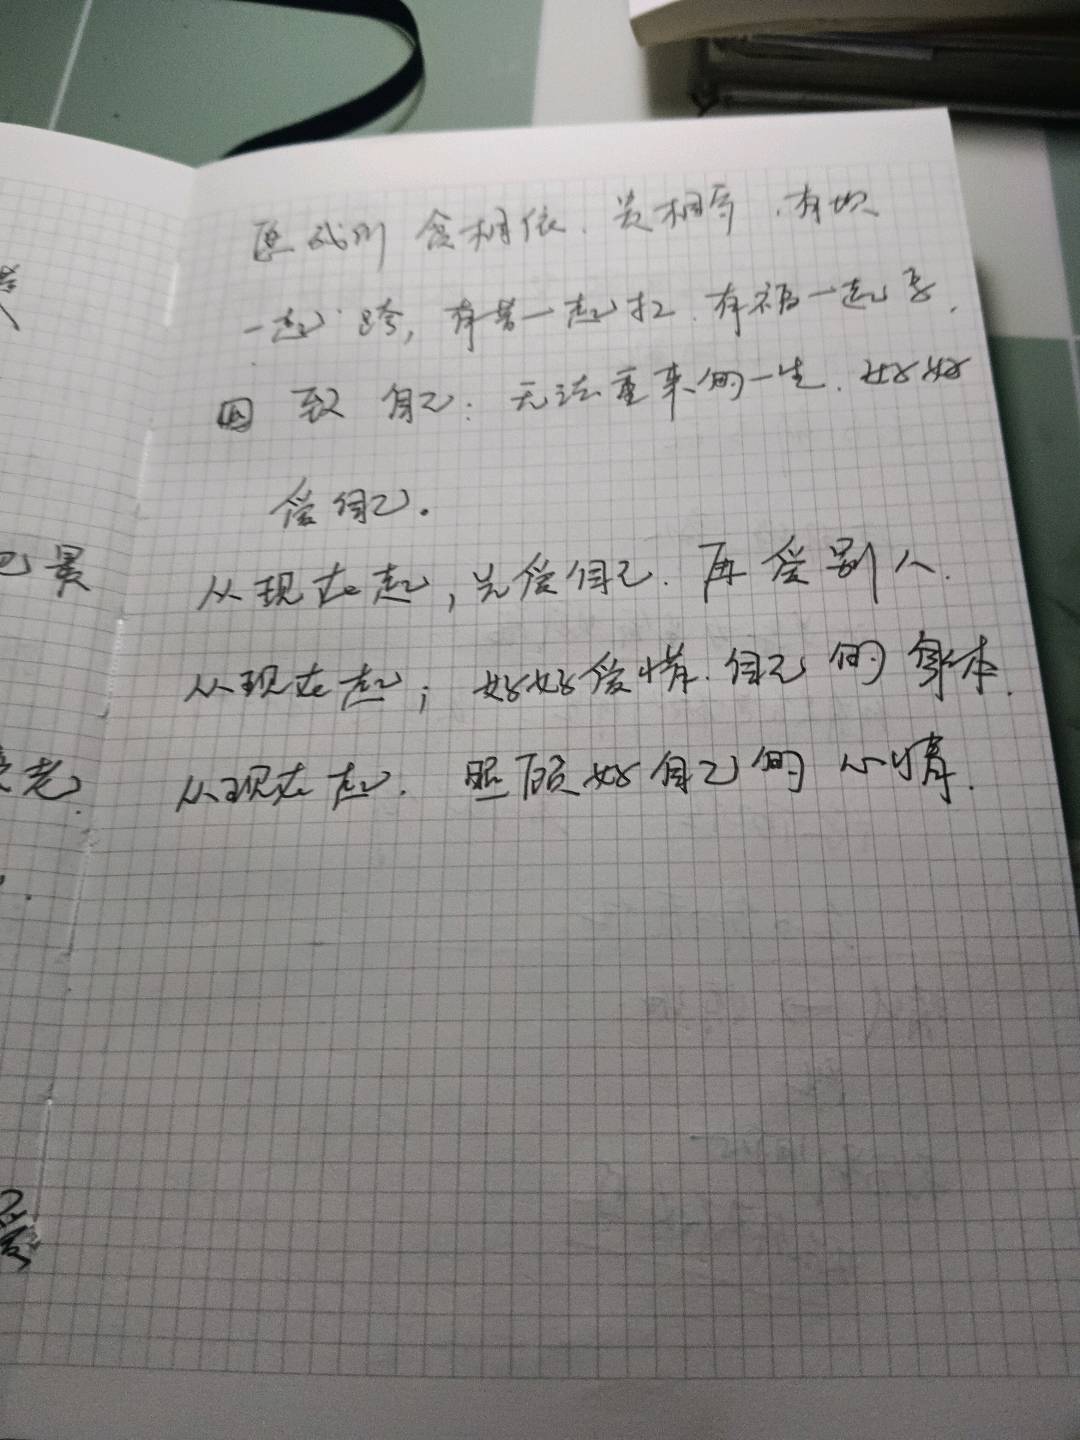 愿我们贫相依.贵相守.有坎
一起跨,有苦一起扛.有福一起享.
四 致自己:无法重来的一生.好好
爱自己.
从现在起,先爱自己.再爱别人.
从现在起;好好爱惜.自己的身体.
从现在起.照顾好自己的心情.